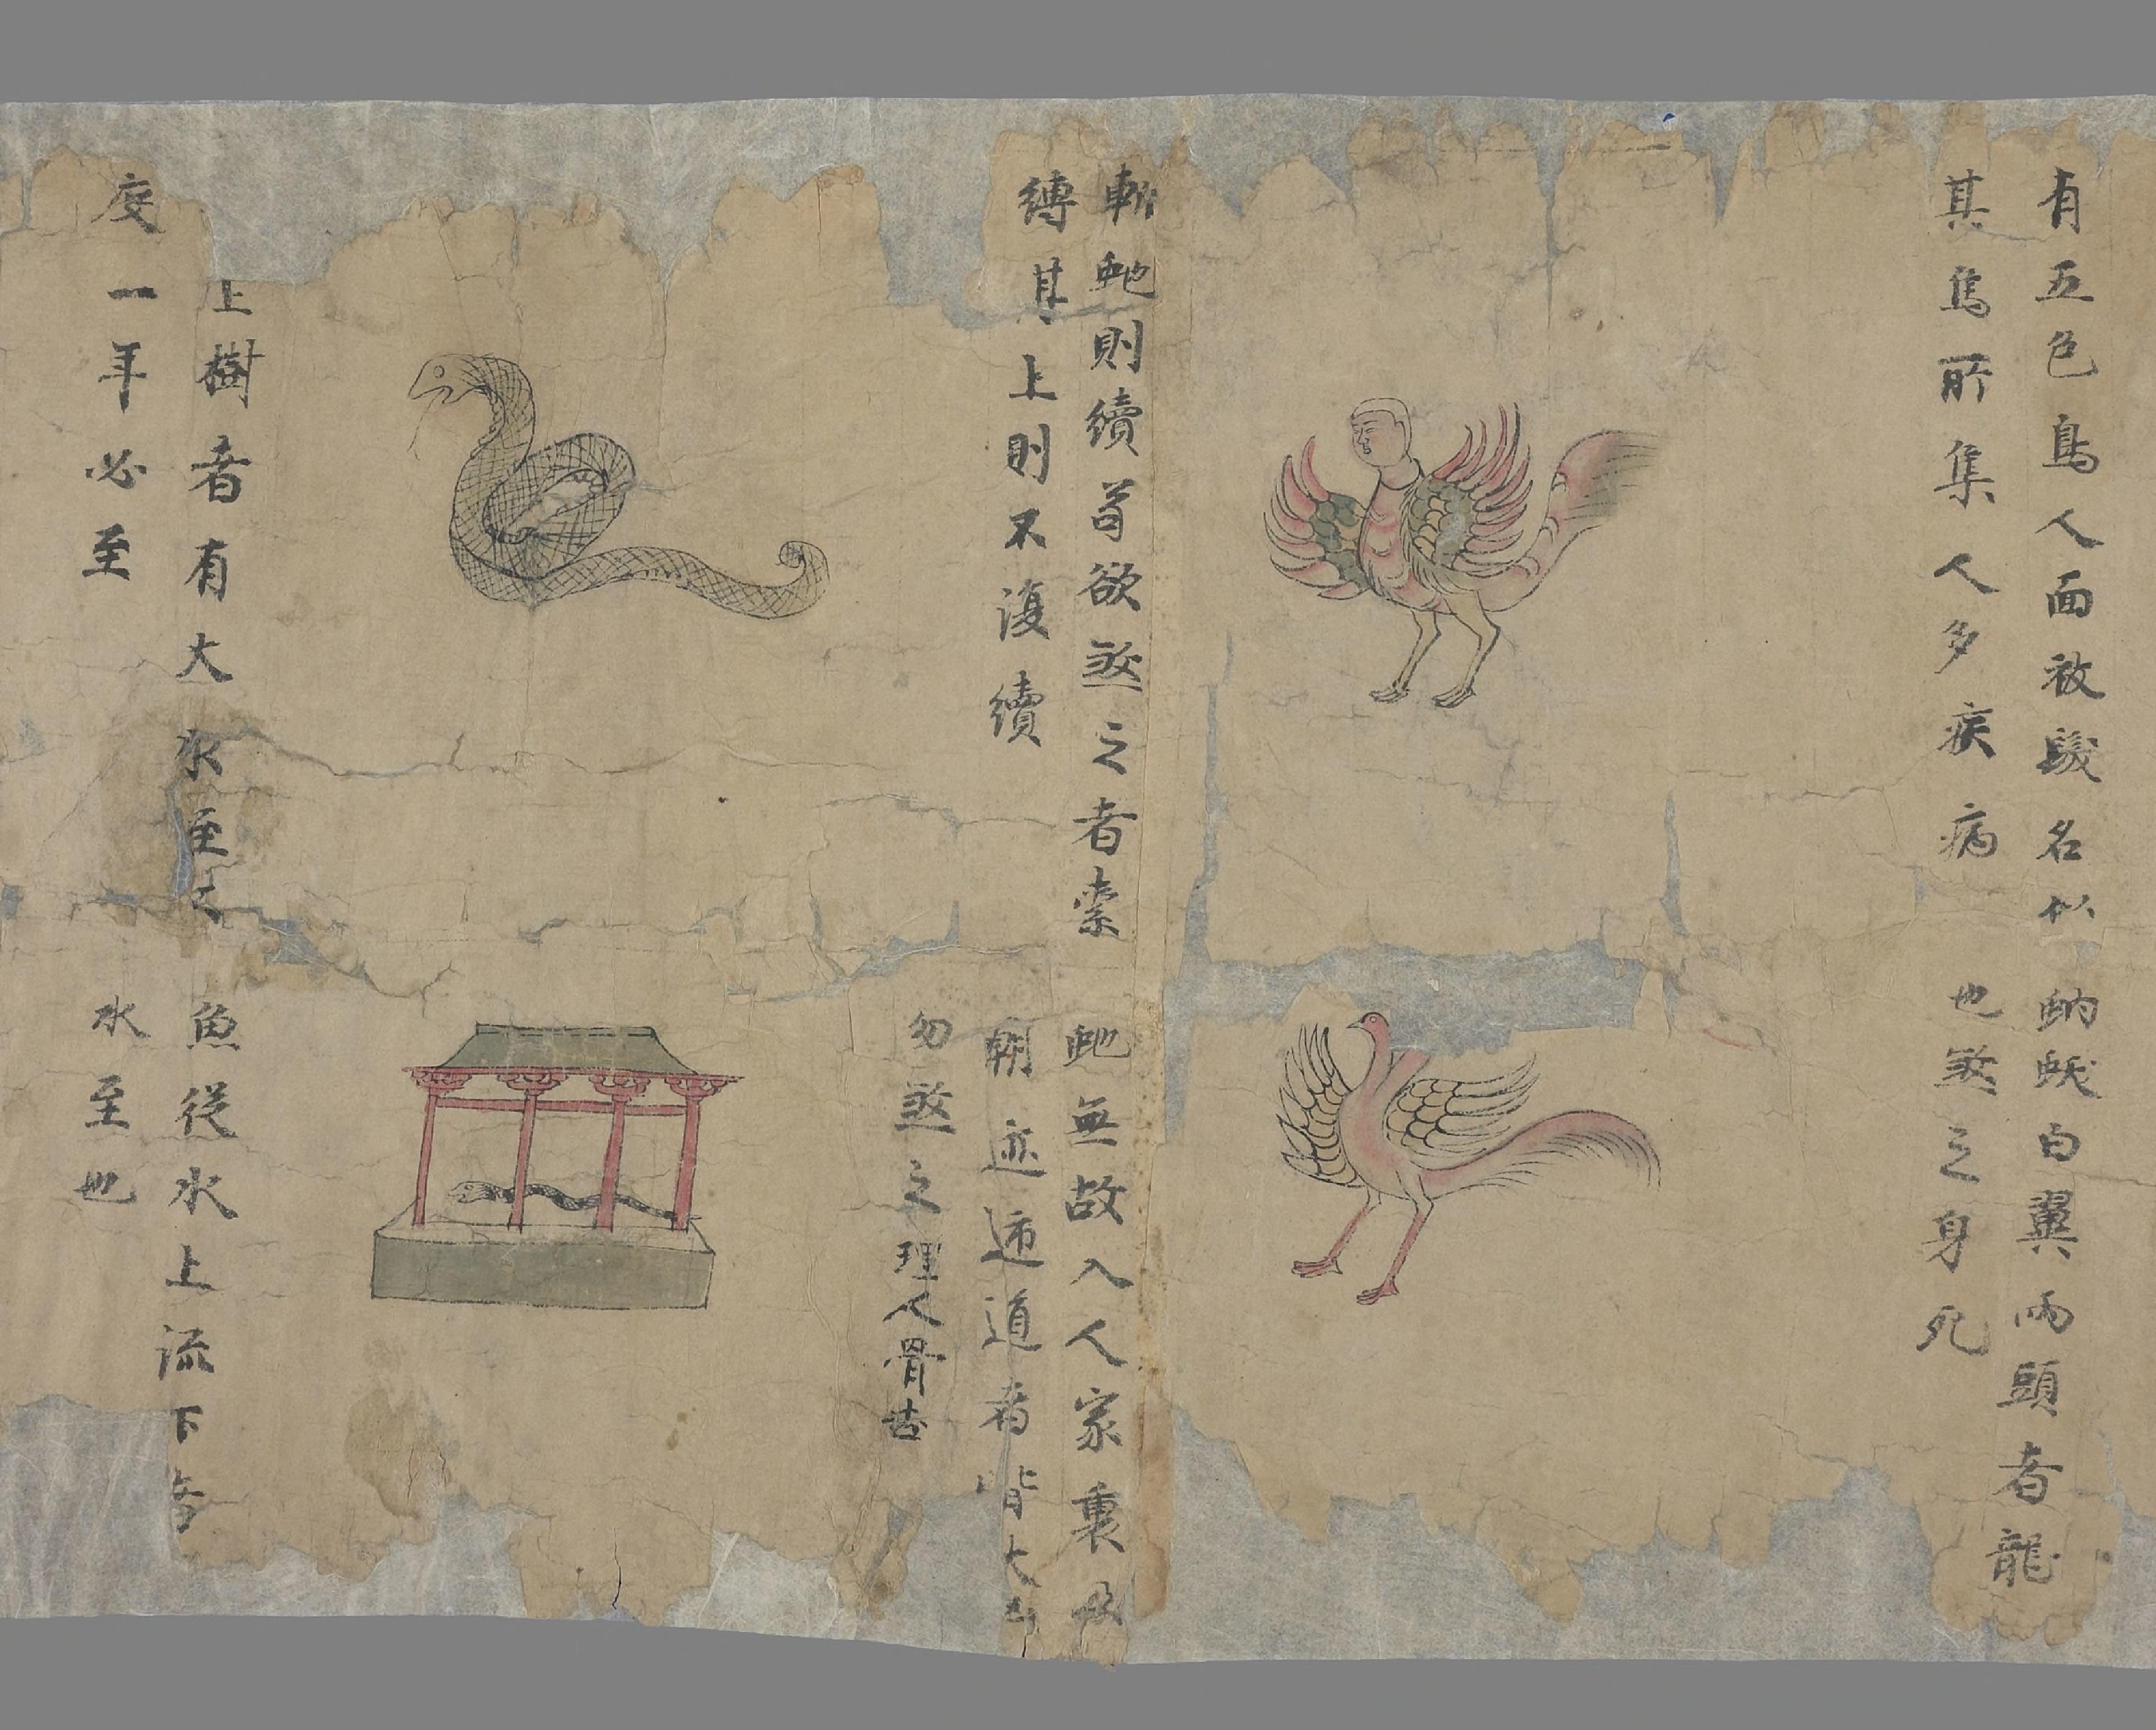 有五色鳥人面被髮名似
其鳥所集人多疾病
蚋蛂白翼兩頭者龍
也煞之身死
斬虵則續若欲煞之者索
縛其上則不復續
虵無故入人家裏及
朝迹遮道者皆大
勿煞之理人骨吉
上樹者有大水至
度一年必至
魚從水上流下者
水至也